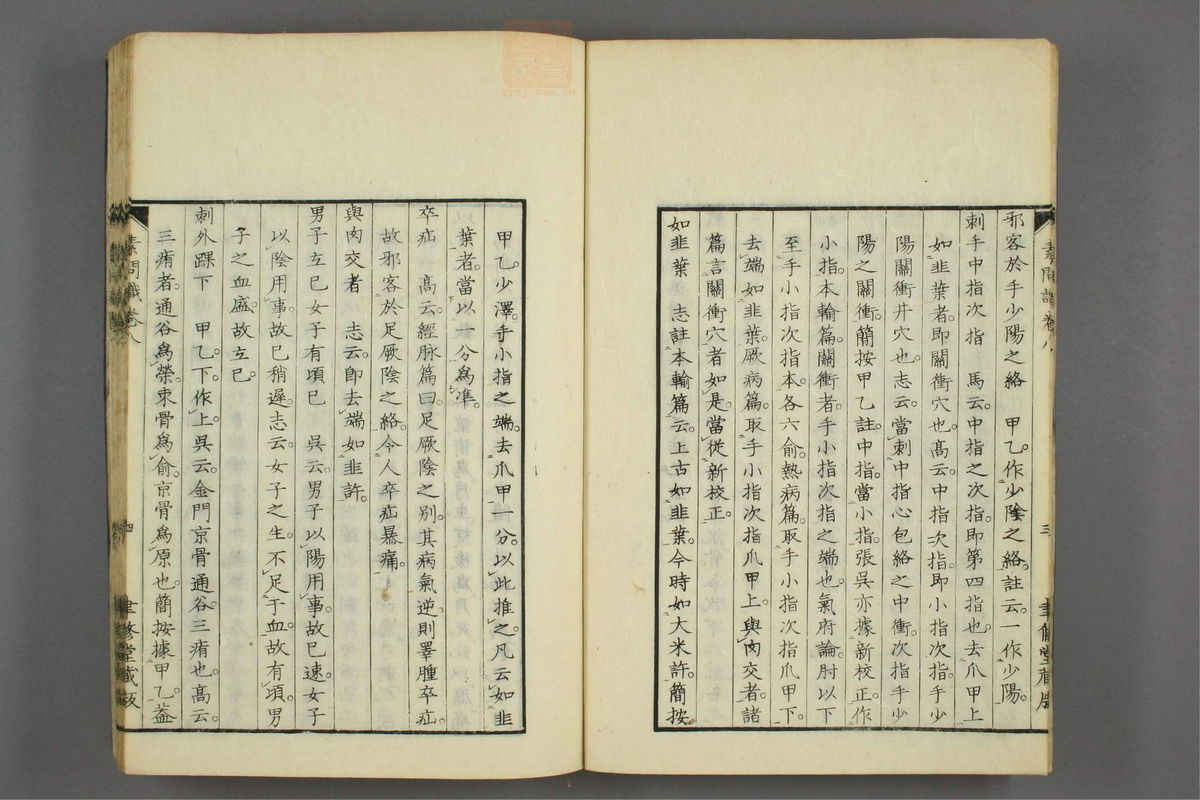 邪客於手少陽之絡　甲乙作少陰之絡。註云。一作少陽。
刺手中指次指　馬云。中指之次指。即第四指也。去爪甲上
如韭葉者。即關衝穴也。高云。中指次指。即小指次指。手少
陽關衝井穴也。志云。當刺中指心包絡之中衝。次指手少
陽之關衝。簡按甲乙註中指。當小指。張吳亦據新校正。作
小指。本輸篇。關衝者。手小指次指之端也。氣府論。肘以下
至手小指次指本。各六俞。熱病篇。取手小指次指爪甲下。
去端如韭葉。厥病篇。取手小指次指爪甲上。與肉交者。諸
篇言關衝穴者如是。當從新校正。
如韭葉　志註本輸篇云。上古如韭葉。今時如大米許。簡按
素問識卷八
三
聿修堂藏版
甲乙。少澤。手小指之端。去爪甲一分。以此推之。凡云如韭
葉者。當以一分爲準。
卒疝　高云。經脉篇曰。足厥陰之別。其病氣逆。則睪腫卒疝。
故邪客於足厥陰之絡。令人卒疝暴痛。
與肉交者　志云。卽去端如韭許。
男子立已女子有頃已　吳云。男子以陽用事。故已速。女子
以陰用事。故已稍遲。志云。女子之生。不足于血。故有頃。男
子之血盛。故立已。
刺外踝下　甲乙。下。作上。吳云。金門京骨通谷。三痏也。高云。
三痏者。通谷爲滎。束骨爲俞。京骨爲原也。簡按據甲乙。蓋
素問識卷八
四
聿修堂藏版